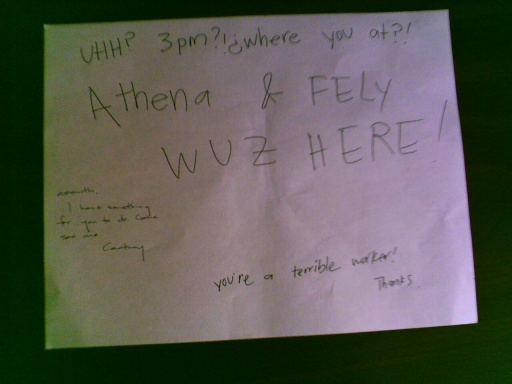 UHH? 3pm?!¿where you at?!
Athena & FELY
WUZ HERE!
I have something
for you to do. Come
see me
you're a terrible worker!
Thanks.